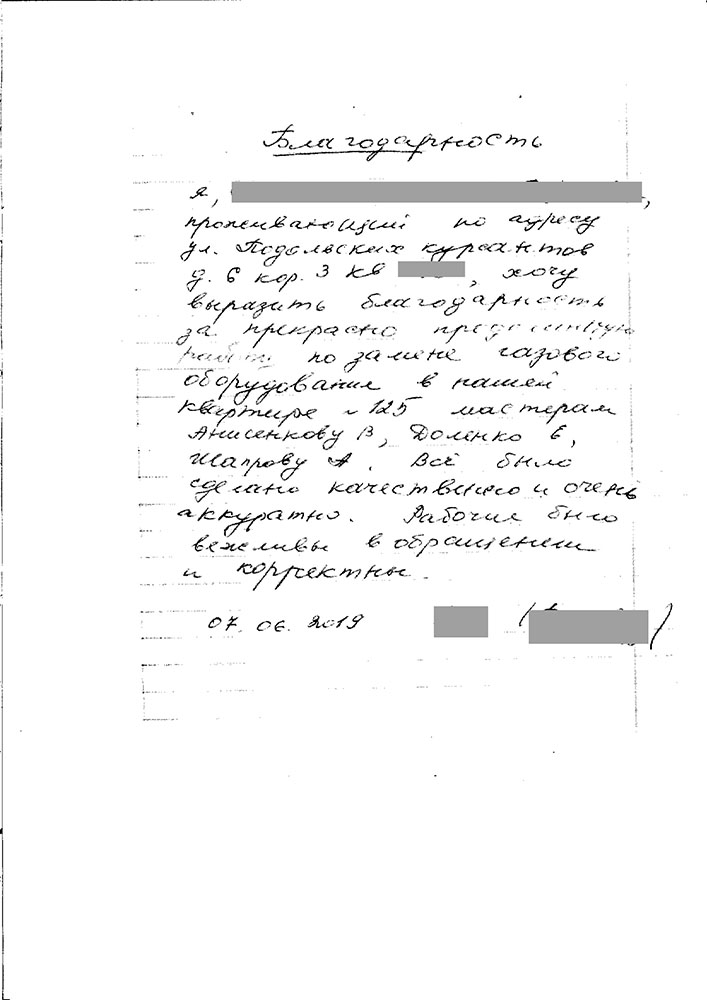 Благодарность
я,
проживающий по адресу
ул. Подольских курсантов
д. 6 кор. 3 кв , хочу
выразить благодарность
за прекрасно
по замене газового
оборудования в нашей
квартире №125 мастерам
Анисенкову В, Доленко Е,
Шапрову А. Всё было
сделано качественно и очень
аккуратно. Рабочие было
вежливы в обращении
и корректны.
07.06.2019